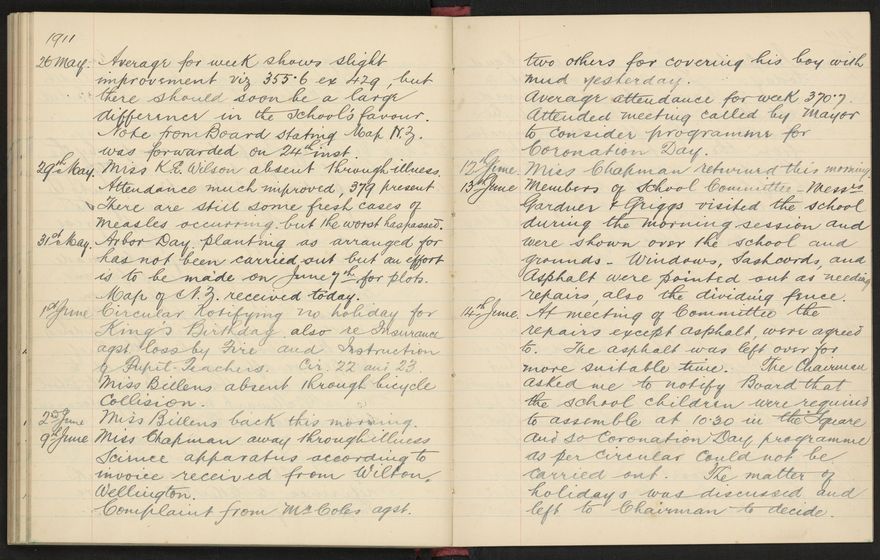 1911
26 May. Average for week shows slight
improvement viz 355.6 ex 429, but
there should soon be a large
difference in the School's favour.
Note from Board stating Map N.Z.
was forwarded on 24th inst.
29th May. Miss K.E. Wilson absent through illness.
Attendance much improved, 379 present
There are still some fresh cases of
measles occurring. but the worst has passed.
31st May. Arbor Day planting as arranged for
has not been carried out but an effort
is to be made on June 7th for plots.
Map of N.Z. received today.
1st June Circular notifying no holiday for
King's Birthday also re Insurance
agst loss by Fire and Instruction
of Pupil-Teachers. Cir. 22 and 23
Miss Billens absent through bicycle
Collision.
2nd June Miss Billens back this morning.
9th June Miss Chapman away through illness
Science apparatus according to
invoice received from Wilton,
Wellington.
Complaint from Mr Coles agst.
two others for covering his boy with
mud yesterday.
Average attendance for week 370.7.
Attended meeting called by Mayor
to consider programme for
Coronation Day.
12th June. Miss Chapman returned this morning
13th June Members of School Committee - Messrs
Gardner & Griggs visited the school
during the morning session and
were shown over the school and
grounds. Windows, Sashcords, and
Asphalt were pointed out as needing
repairs, also the dividing fence.
14th June. At meeting of Committee the
repairs except asphalt were agreed
to. The asphalt was left over for
more suitable time. The Chairman
asked me to notify Board that
the school children were required
to assemble at 10.30 in the Square
and so Coronation Day programme
as per circular could not be
carried out. The matter of
holidays was discussed and
left to Chairman to decide.